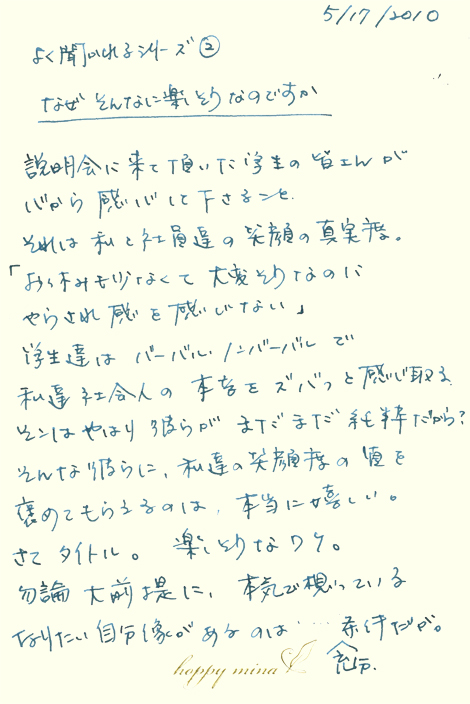 5/17/2010
よく聞かれるシリーズ②
なぜそんなに楽しそうなのですか
説明会に来て頂いた学生の皆さんが
心から感心して下さること。
それは私と社員達の笑顔の真実度。
「お休みも少なくて大変そうなのに
やらされ感を感じない」
学生達はバーバル、ノンバーバルで
私達社会人の本音をズバっと感じ取る。
そこはやはり彼らがまだまだ純粋だから?
そんな彼らに、私達の笑顔度の値を
褒めてもらえるのは、本当に嬉しい。
さてタイトル。 楽しそうなワケ。
勿論大前提に、本気で想っている
なりたい自分像があるのは…条件だが。
充分
happy mina